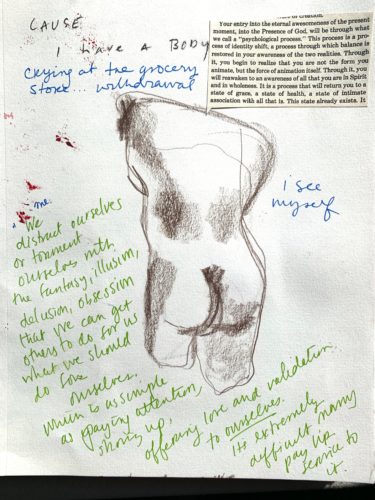 CAUSE
I HAVE A BODY
crying at the grocery
store... withdrawal
Your entry into the eternal awesomeness of the present
moment, into the Presence of God, will be through what
we call a "psychological process." This process is a pro-
cess of identity shift, a process through which balance is
restored in your awareness of the two realities. Through
it, you begin to realize that you are not the form you
animate, but the force of animation itself. Through it, you
will reawaken to an awareness of all that you are in Spirit
and in wholeness. It is a process that will return you to a
state of grace, a state of health, a state of intimate
association with all that is. This state already exists. It
I see
myself
me.
We
distract ourselves
or torment
ourselves with
the fantasy, illusion,
delusion, obsession
that we can get
others to do for us
what we should
do for
ourselves.
which is as simple
as paying attention,
showing up,
offering love and validation
to ourselves.
It's extremely
difficult. many
pay lip
service to
it.